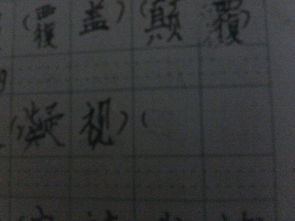 (覆盖)(颠覆)
(凝视)(